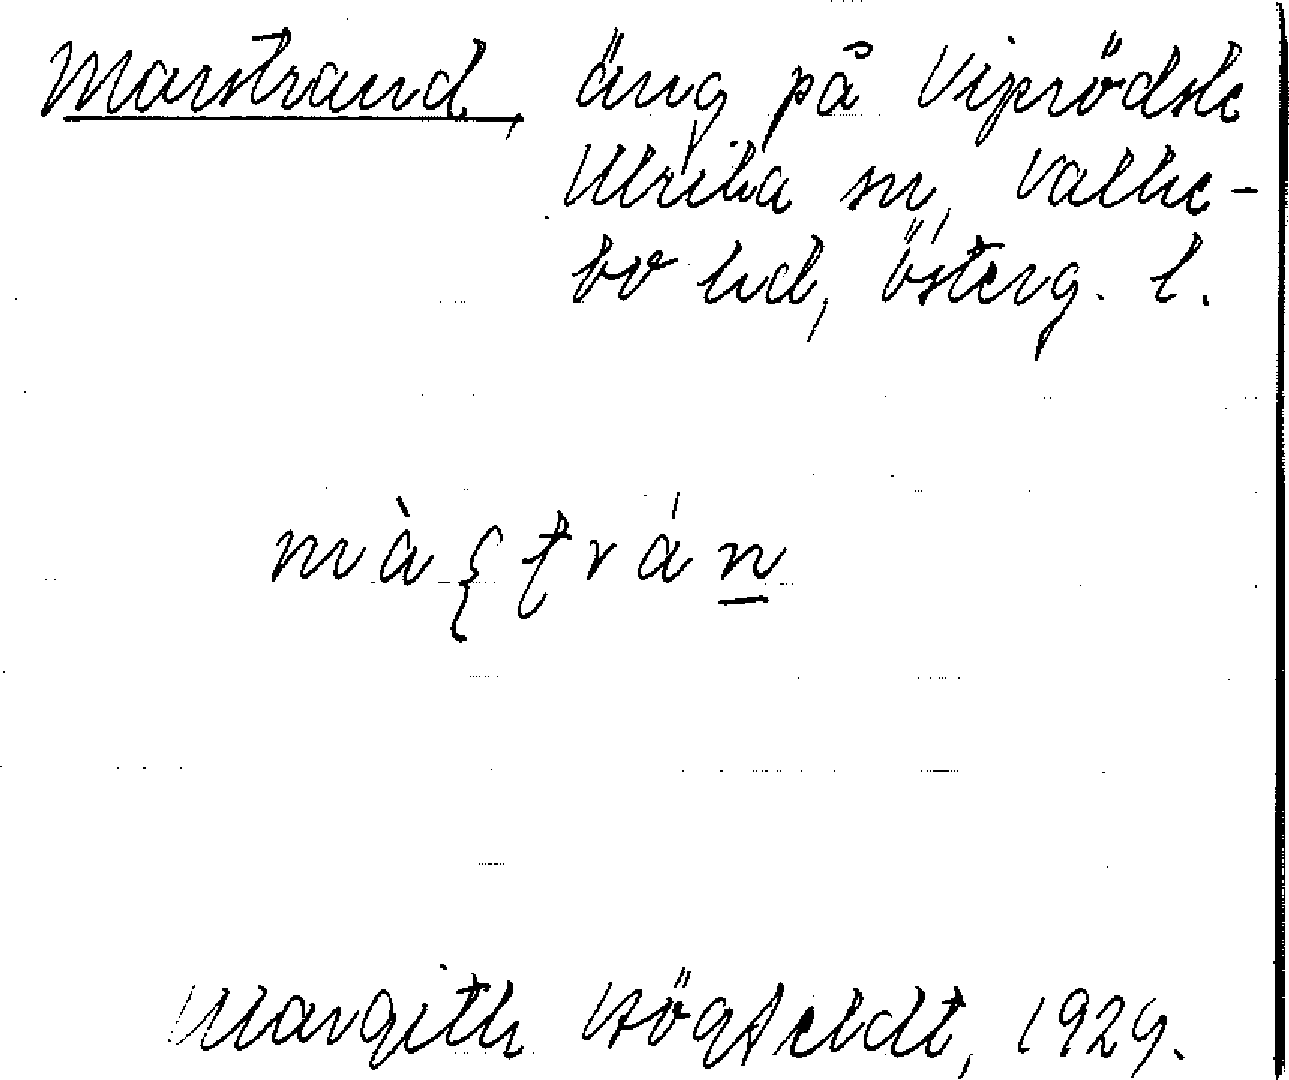 Marstrand, äng på Viprödsle
Ulrika sn, Valke-
bo hd, Österg. l.
màʂtrán
Margith Högfeldt, 1929.